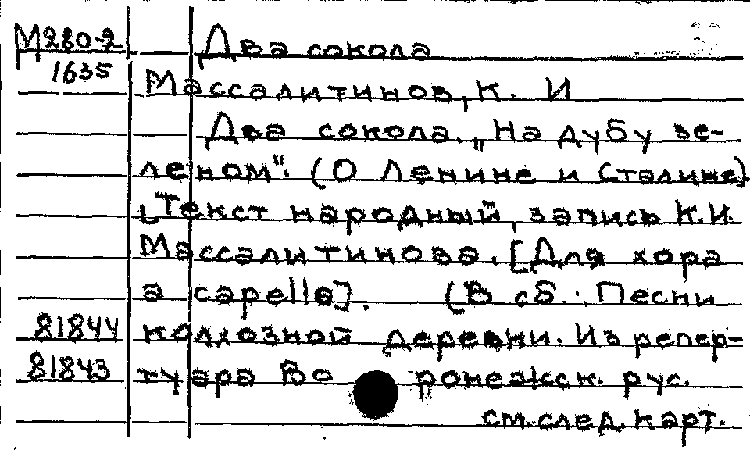 М280-2 Два сокола
1635 Массалитинов, К. И
Два сокола. „На дубу зе-
леном“. (О Ленине и Сталине)
[Текст народный, запись К.И.
Массалитинова. [Для хора
a capella]. (В сб.: Песни
81844 колхозной деревни. Из репер-
81843 туара Воронежск. рус.
см. след. карт.